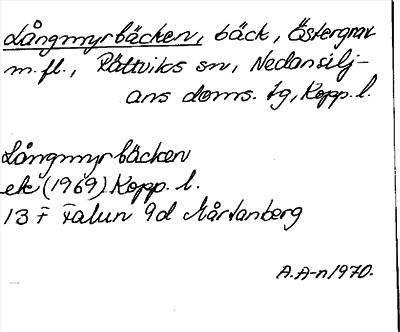 Långmyrbäcken, bäck, Östergrav
m.fl., Rättviks sn, Nedansilj-
ans doms. tg, Kopp. l.
Långmyrbäcken
ek (1969) Kopp. l.
13 F Falun 9d Mårtanberg
A.A-n 1970.